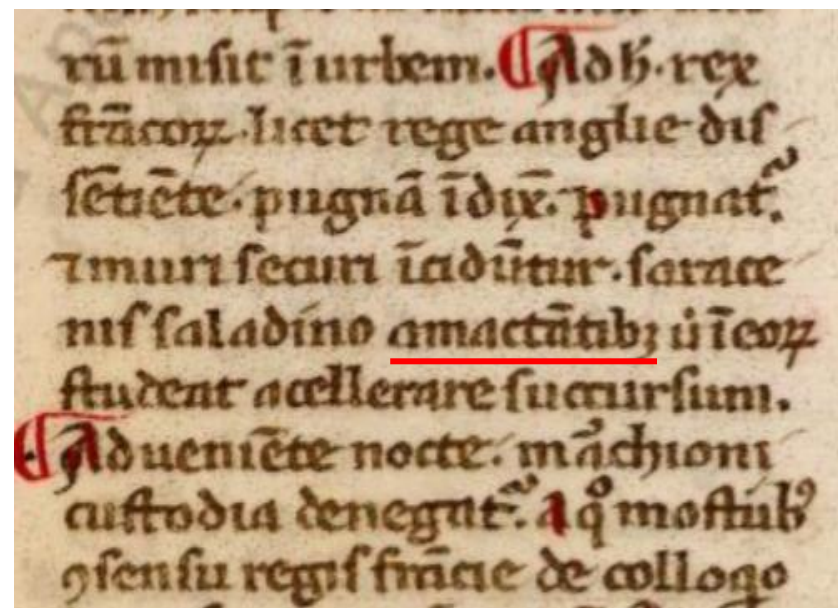 rū misit ī urbem. Ad h̄. rex
frācoꝝ. licet rege anglie dis
sētiēte. pugnā īdix̄. pugnat᷑.
⁊ muri securi īcidūtur. sarace
nis saladino amactātibꝫ ū īeoꝝ
student acellerare succursum.
Adueniēte nocte. māchioni
custodia denegat᷑. a qͦ mostubꝰ
ꝯsensu regis frācie de colloqo